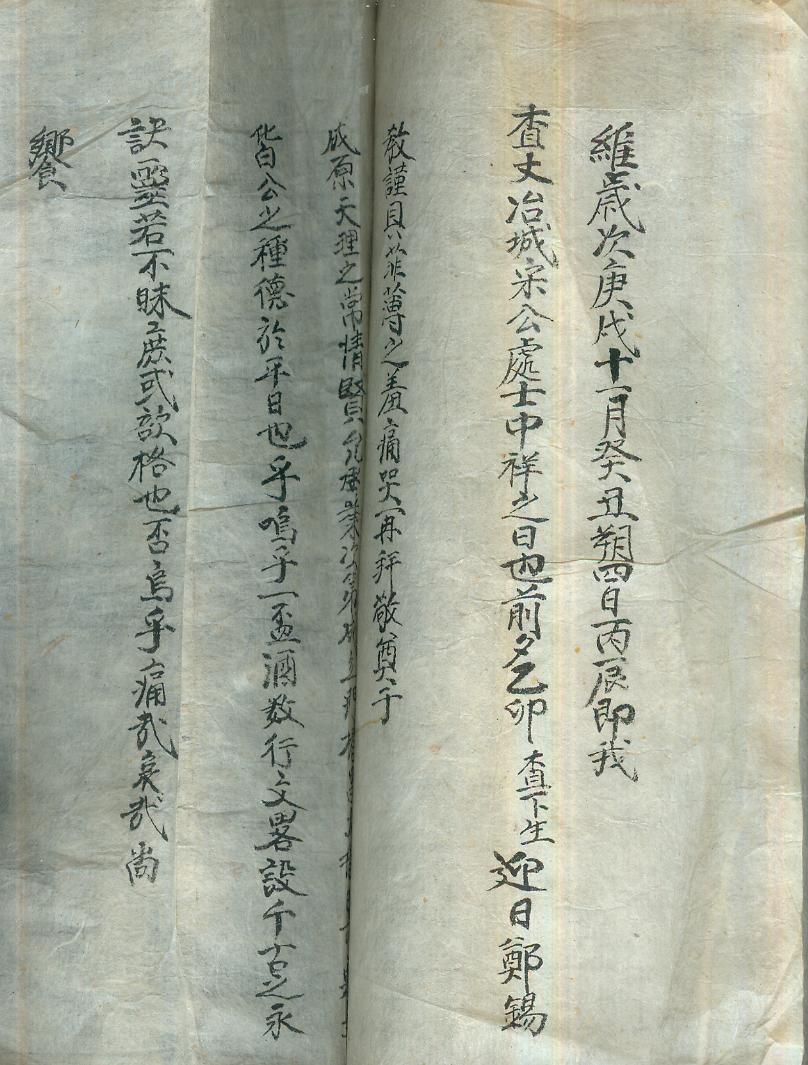 維歲次庚戌十一月癸丑朔四日丙辰即我
査丈冶城宋公處士中祥之日也前夕乙卯 査下生 迎日鄭錫
教謹具菲薄之羞痛哭再拜敬奠于
原天理之常情賢允
皆白公之種德於平日也乎嗚乎一盃酒数行文畧設千古之永
訣靈若不昧庶或歆格也否烏乎痛哉哀哉尚
饗